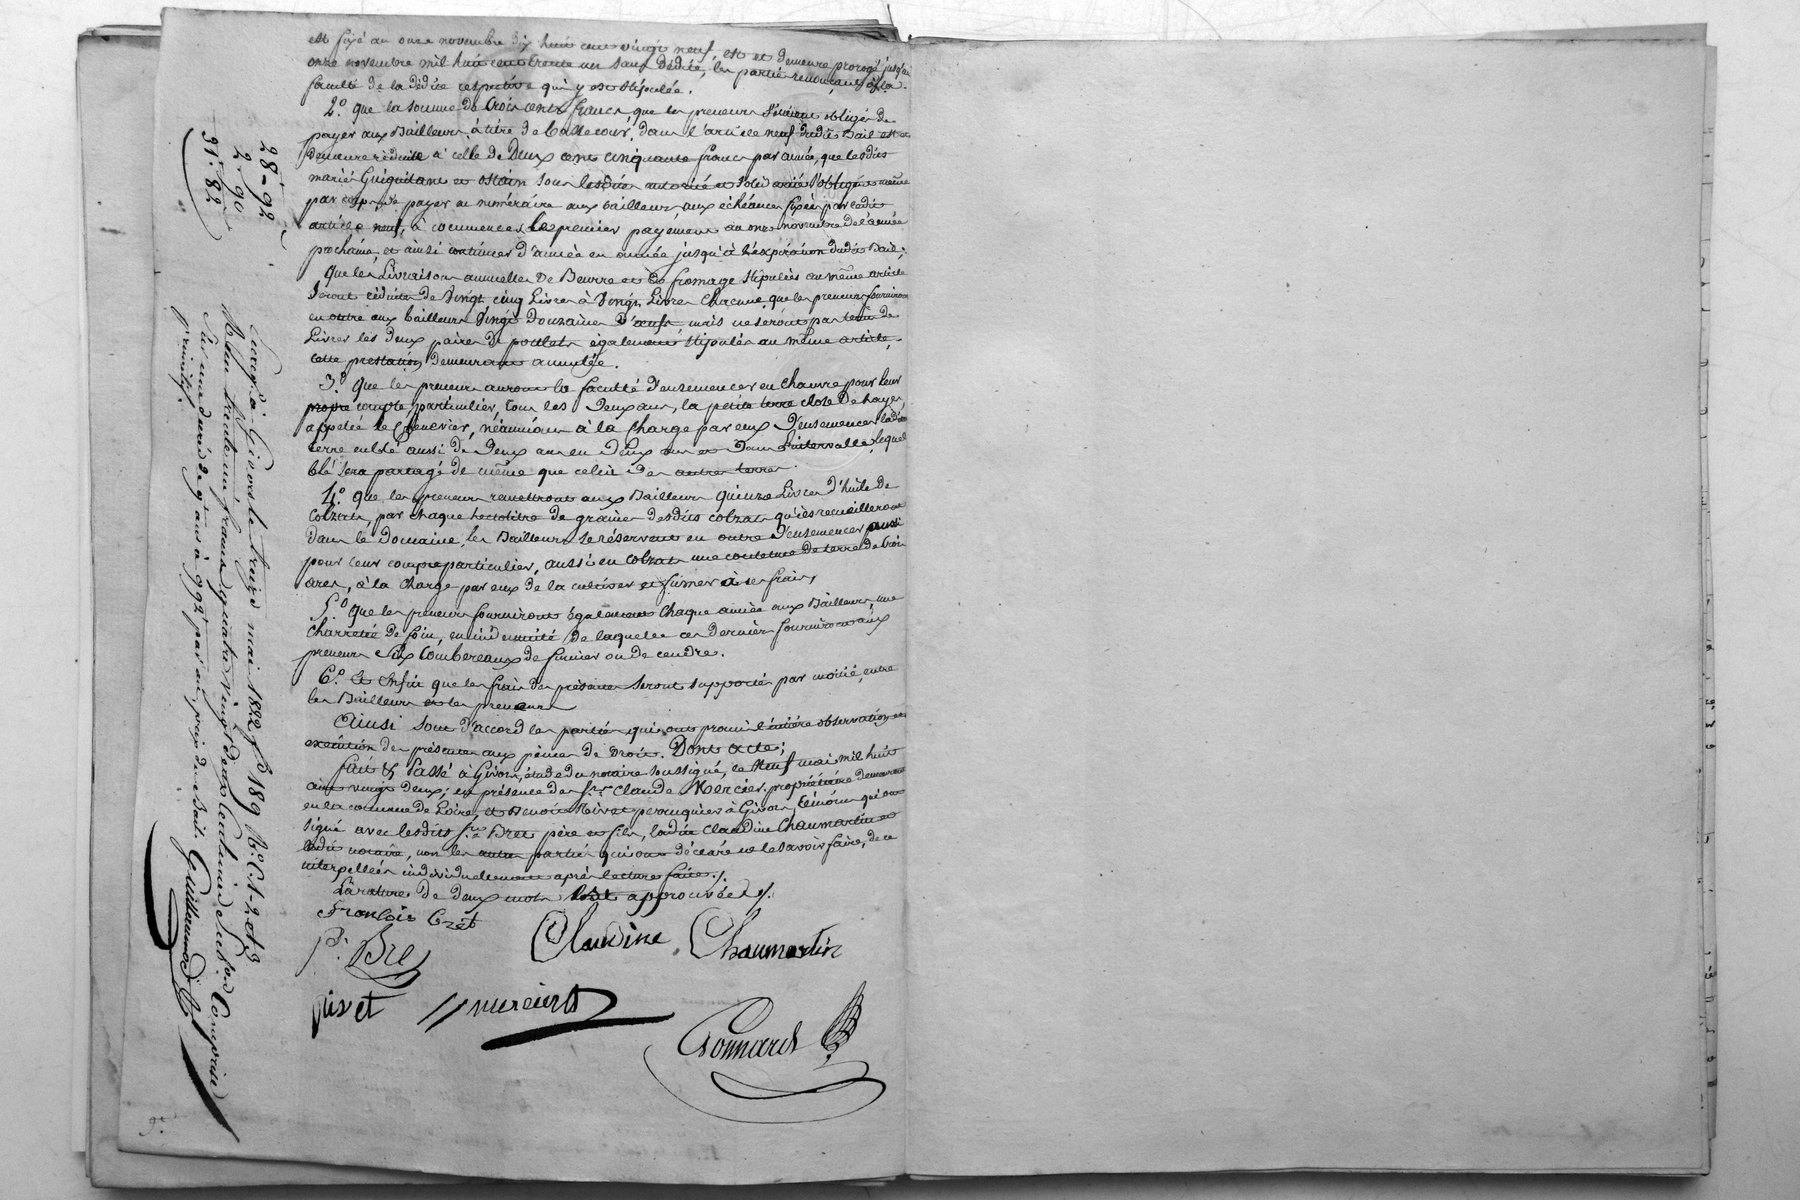 est fixé au onze novembre dix huit cent vingt neuf, est et demeure prorogé jusqu'au
onze novembre mil huit cent trente un sans dédite, les parties renonçant à la
faculté de la dédite respective qui y est stipulée.
2.° que la somme de trois cents francs, que les preneurs s'étaient obligés de
payer aux Bailleurs à titre de basse cour, dans l'article neuf dudit Bail est et
demeure réduite à celle de Deux cent cinquante francs par année, que lesdits
mariés Guiguitant et ostain sous lesdites autorité et solidarité s'obligent même
par corps, de payer en numéraire aux bailleurs, aux échéances fixées par ledit
article neuf, à commencer le premier payement au onze novembre de l'année
prochaine, et ainsi continuer d'année en année jusqu'à l'expiration dudit Bail;
Que les Livraisons annuelles de Beurre et de fromage stipulées au même article
seront réduites de Vingt cinq Livres à Vingt Livres Chacune, que les preneurs fourniront
en outre aux bailleurs Vingt Douzaines d'œufs mais ne seront pas tenus de
Livrer les deux paires de poulets également stipulés au même article,
cette prestation Demeurant annulée.
3.° Que les preneurs auront la faculté d'ensemencer en Chanvre pour leur
propre compte particulier, tous les Deux ans, la petite terre close de hayes,
appelée le Chenevier, néanmoins à la Charge par eux d'ensemencer ladite
terre en blé aussi de Deux ans en Deux ans et Dans l'intervalle, lequel
blé sera partagé de même que celui des autres terres.
4.° Que les preneurs remettront aux Bailleurs Quinze Livres d'huile de
Colzats, par chaque hectolitre de graines desdits colzats qu'ils recueilleront
dans le Domaine, les Bailleurs se réservent en outre d'ensemencer aussi
pour leur compte particulier, aussi en colzats une contenue de terre de trois
ares, à la charge par eux de la cultiver et fumer à ses frais,
5.° Que les preneurs fourniront également chaque année aux Bailleurs, une
Charretée de foin, en indemnité de laquelle ces derniers fourniront aux
preneurs Six Tombereaux de fumier ou de cendres.
6.° Et Enfin que les frais des présentes seront supportés par moitié, entre
les Bailleurs et les preneurs
Ainsi sont d'accord les parties qui ont promis l'entière observation et
exécution des présentes aux peines de Droit. Dont acte;
fait & Passé à Givors, étude du notaire soussigné, le Neuf mai mil huit
cent vingt deux; en présence des S.rs Claude Mercier, propriétaire demeurant
en la commune de Loire, et Benoit Rivet perruquier à Givors, témoins qui ont
signé avec lesdits S.rs Bret père et fils, ladite Claudine Chaumartin et
ledit notaire, non les autres parties qui ont déclaré ne le savoir faire, de ce
interpellées individuellement après lecture faite./.
La rature de deux mots est approuvée ./.
François Bret
P.re Bre
Claudine Chaumartin
Rivet
mercier
Bonnard
28 - 92
2 - 90
31. 82
Enreg.é à Givors le treize mai 1822 f.° 189 R.° C.s 1 - 2 et 3
Reçu trente un francs quatre vingt deux centimes subv.on Comprise
Guillermod
9.e